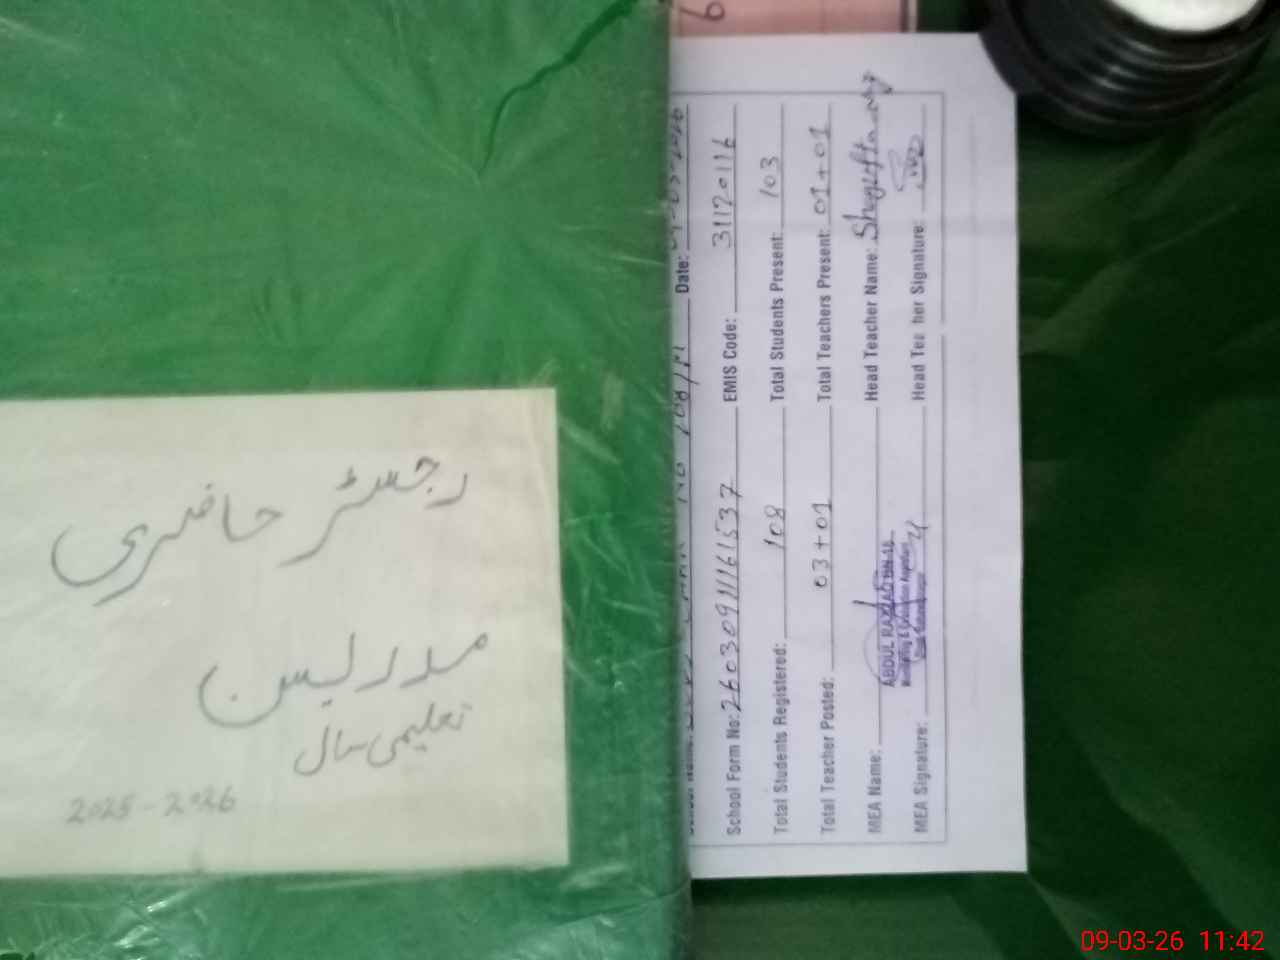 رجسٹر حاضری
مدرسین
تعلیمی سال
2025-2026
6
Date:
School Form No: 26030911161537 EMIS Code: 31120116
Total Students Registered: 108 Total Students Present: 103
Total Teacher Posted: 03+01 Total Teachers Present: 01+01
MEA Name: ABDUL RAZZAQ Head Teacher Name: Shagufta
MEA Signature: Head Tea her Signature:
09-03-26 11:42